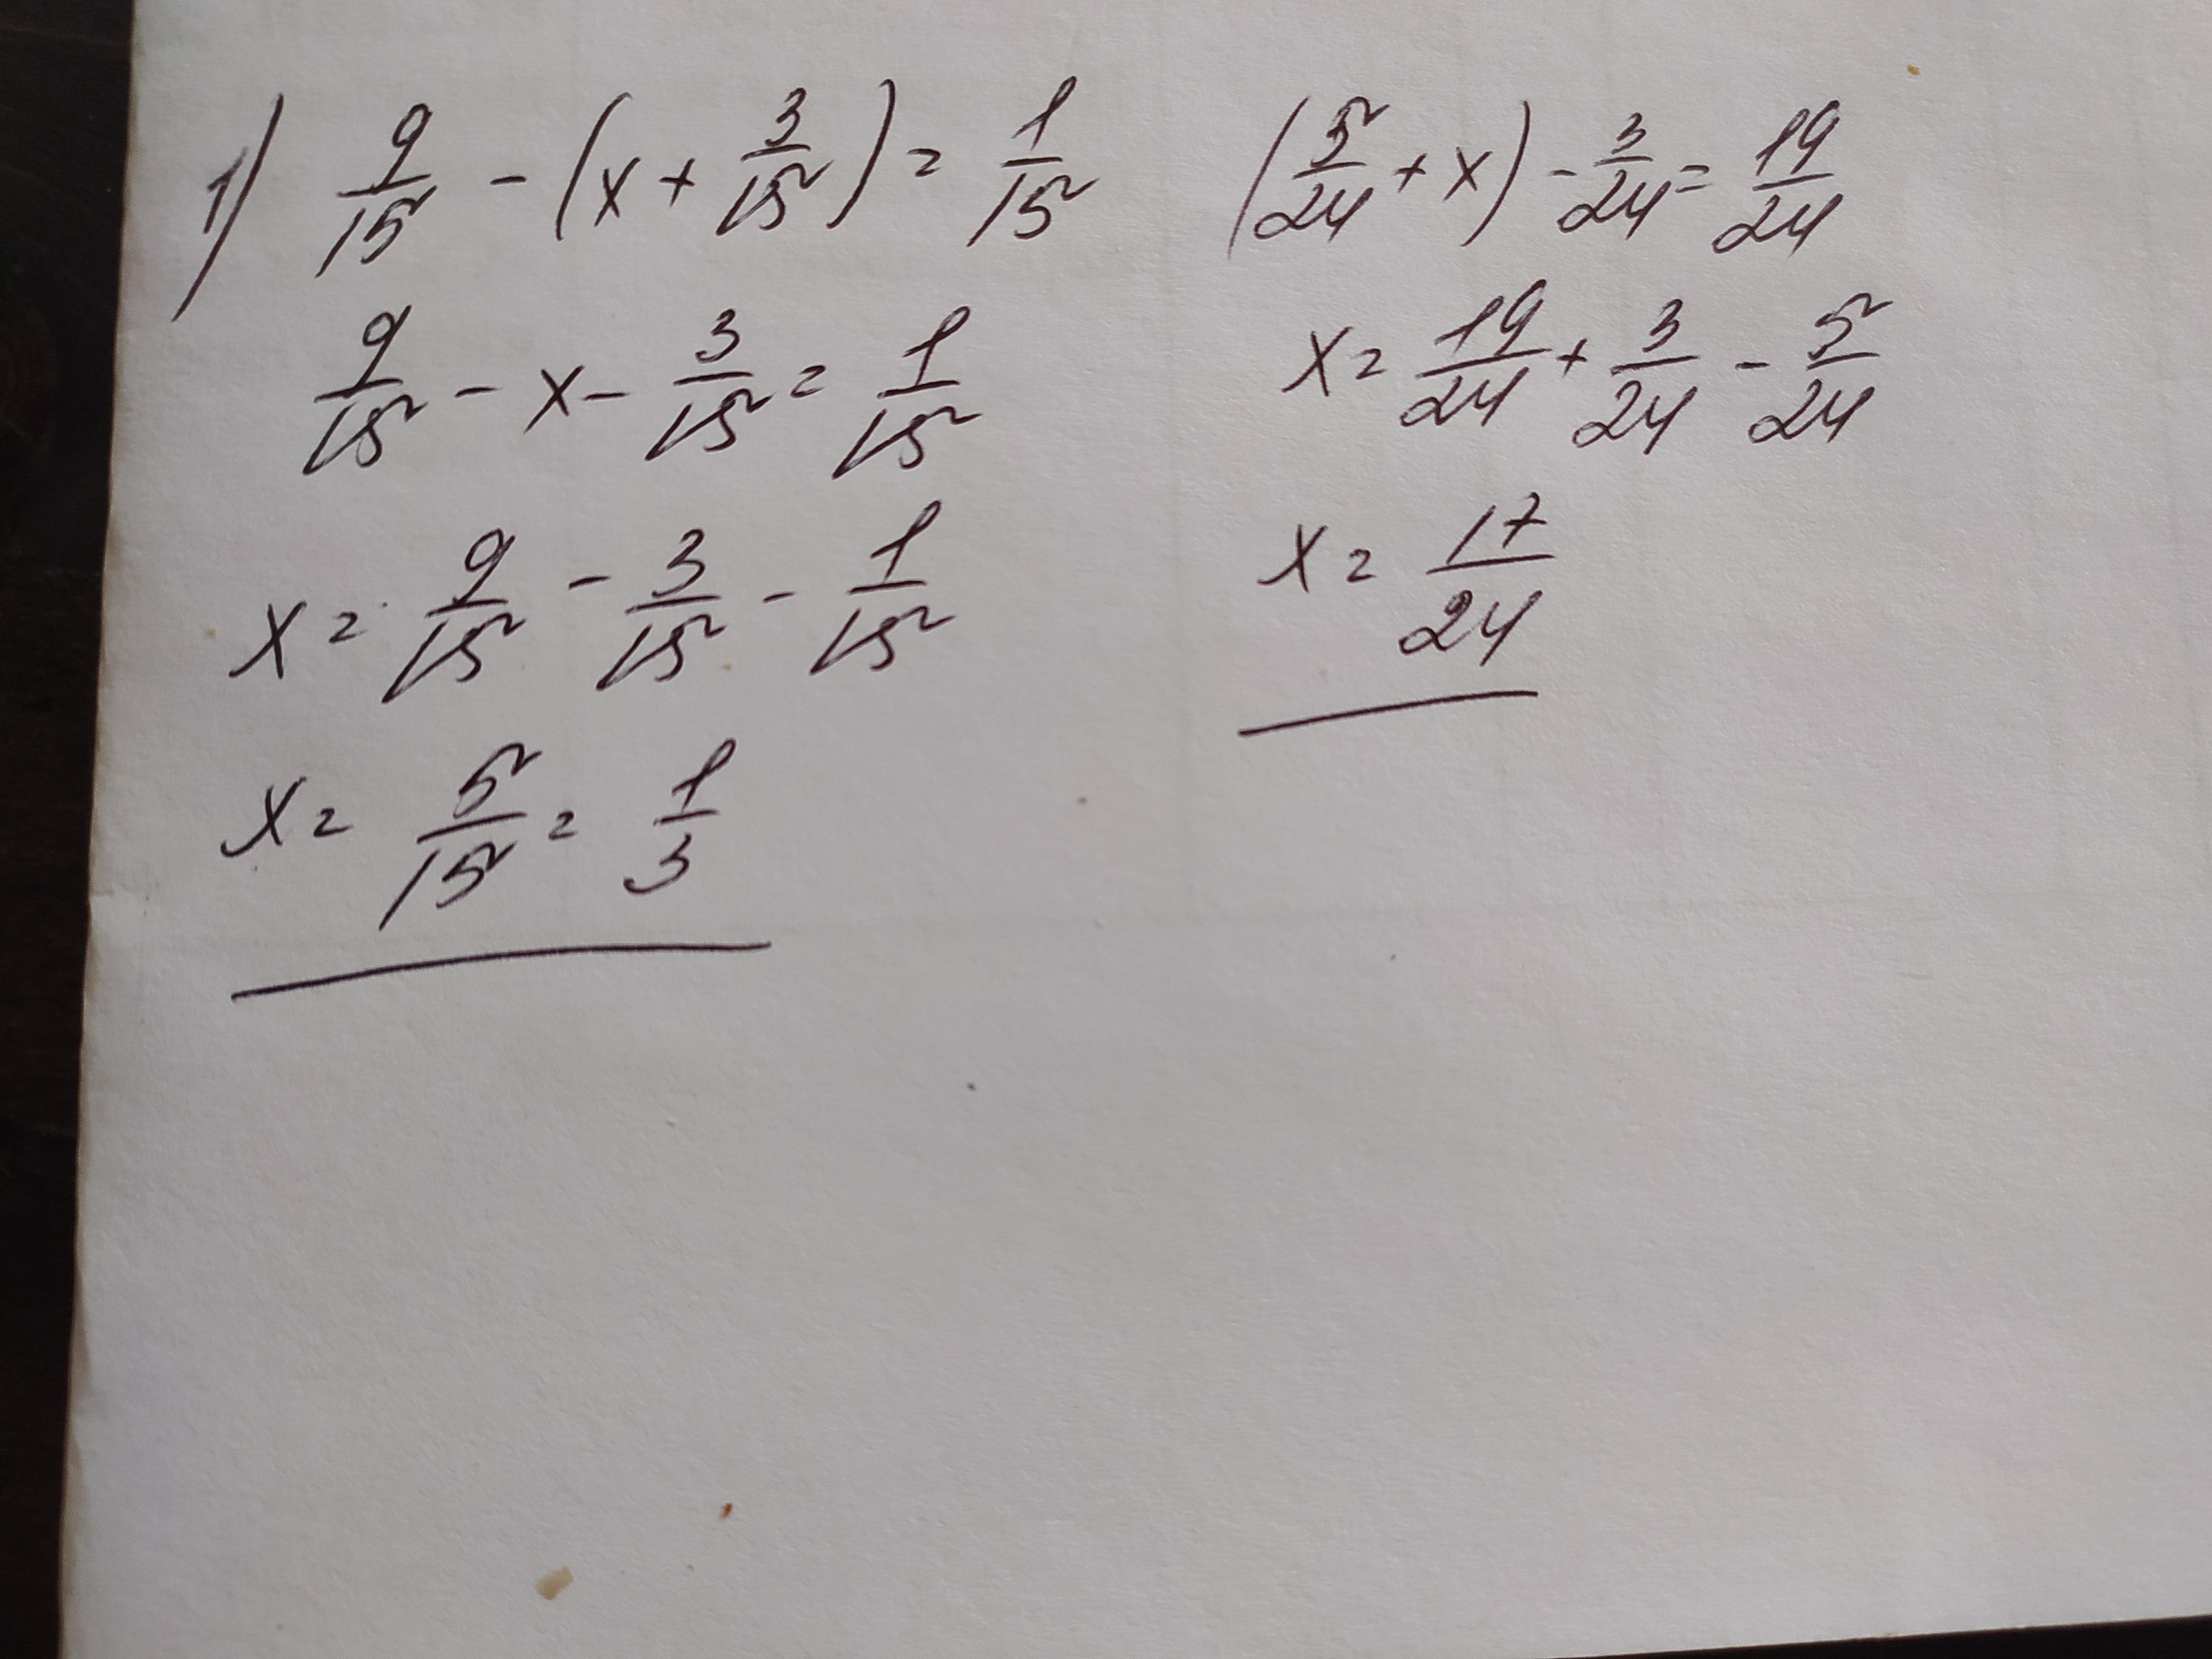 1) 9/15 - (x + 3/15) = 1/15
9/15 - x - 3/15 = 1/15
x = 9/15 - 3/15 - 1/15
x = 5/15 = 1/3
(5/24 + x) - 3/24 = 19/24
x = 19/24 + 3/24 - 5/24
x = 17/24